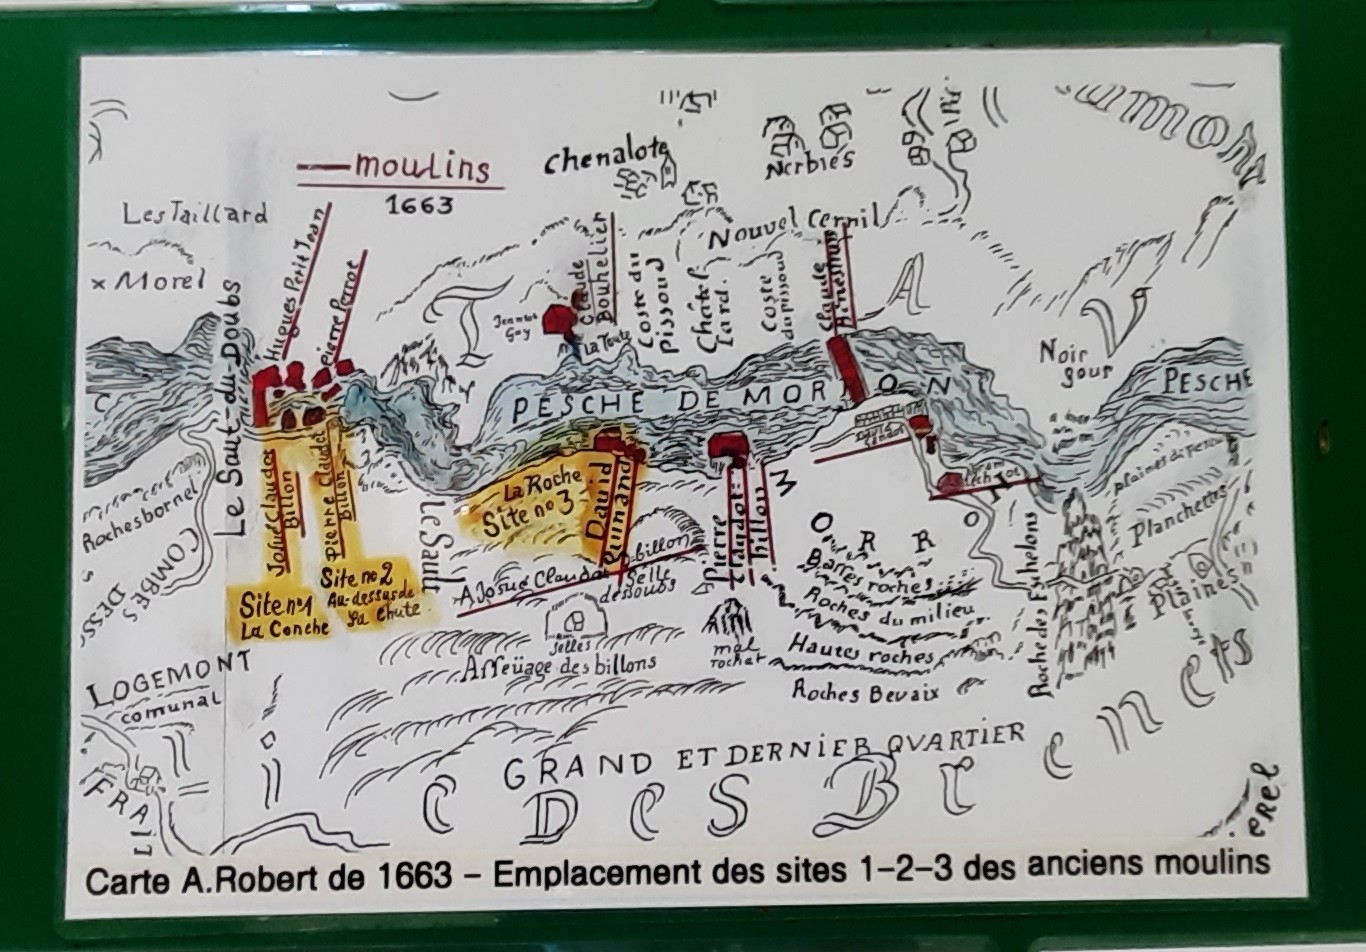 moulins
1663
Chenalote
Nerbiés
Les Taillard
x Morel
Le Saut-du-Doubs
Hugues Petit Jean
Pierre Perrot
Claude
Bouhelier
La Toute
Coste du
pissoud
Châtel
Coste
du pissoud
Nouvel Cernil
Claude
Noir
gour
PESCHE DE MORON
PESCHE
Rochesbornel
COMBES
DESS
Josué Claudot
Billon
Pierre Claudet
Billon
Site nº1
La Conche
Site nº2
Au-dessus de
La chute
Le Saut
La Roche
Site nº 3
David
Guinand
A Josué Claudot-billon
Selle
dessoubs
Pierre
Claudot
billon
3
Barres roches
Roches du milieu
Hautes roches
Roches Bevaix
Roche des Eschelons
plaines du Pesseu
Planchettes
Plaines
mal
rochat
Selles
Affeüage des billons
LOGEMONT
comunal
GRAND ET DERNIER QVARTIER
C DES Brenets
FRA
erel
Carte A.Robert de 1663 – Emplacement des sites 1-2-3 des anciens moulins